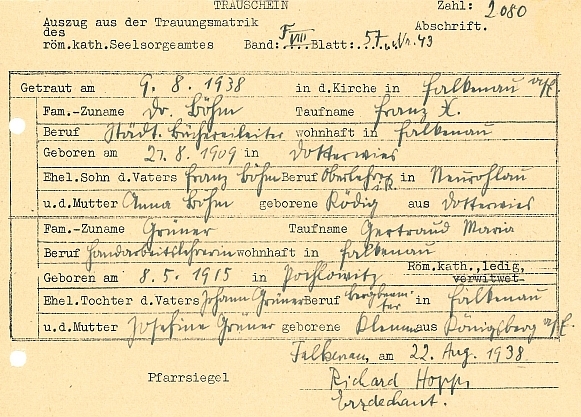 TRAUSCHEIN Zahl: 2080
Auszug aus der Trauungsmatrik Abschrift.
des
röm.kath.Seelsorgeamtes Band: F VIII Blatt: 57, Nr. 43
Getraut am 9. 8. 1938 in d.Kirche in Falkenau a/E.
Fam.-Zuname Dr. Böhm Taufname Franz X.
Beruf Städt. Büchereileiter wohnhaft in Falkenau
Geboren am 27.8.1909 in Dotterwies
Ehel.Sohn d.Vaters Franz Böhm Beruf Oberlehrer i.R. in Neurohlau
u.d.Mutter Anna Böhm geborene Ködig aus Dotterwies
Fam.-Zuname Grüner Taufname Gertraud Maria
Beruf Handarbeitslehrerin wohnhaft in Falkenau
Röm.kath.,ledig,
Geboren am 8.5.1915 in Pochlowitz verwitwet
Ehel.Tochter d.Vaters Johann Grüner Beruf Bergbeamter in Falkenau
u.d.Mutter Josefine Grüner geborene Klemm aus Königsberg a/E.
Falkenau, am 22. Aug. 1938
Pfarrsiegel Richard Hopp,
Erzdechant.